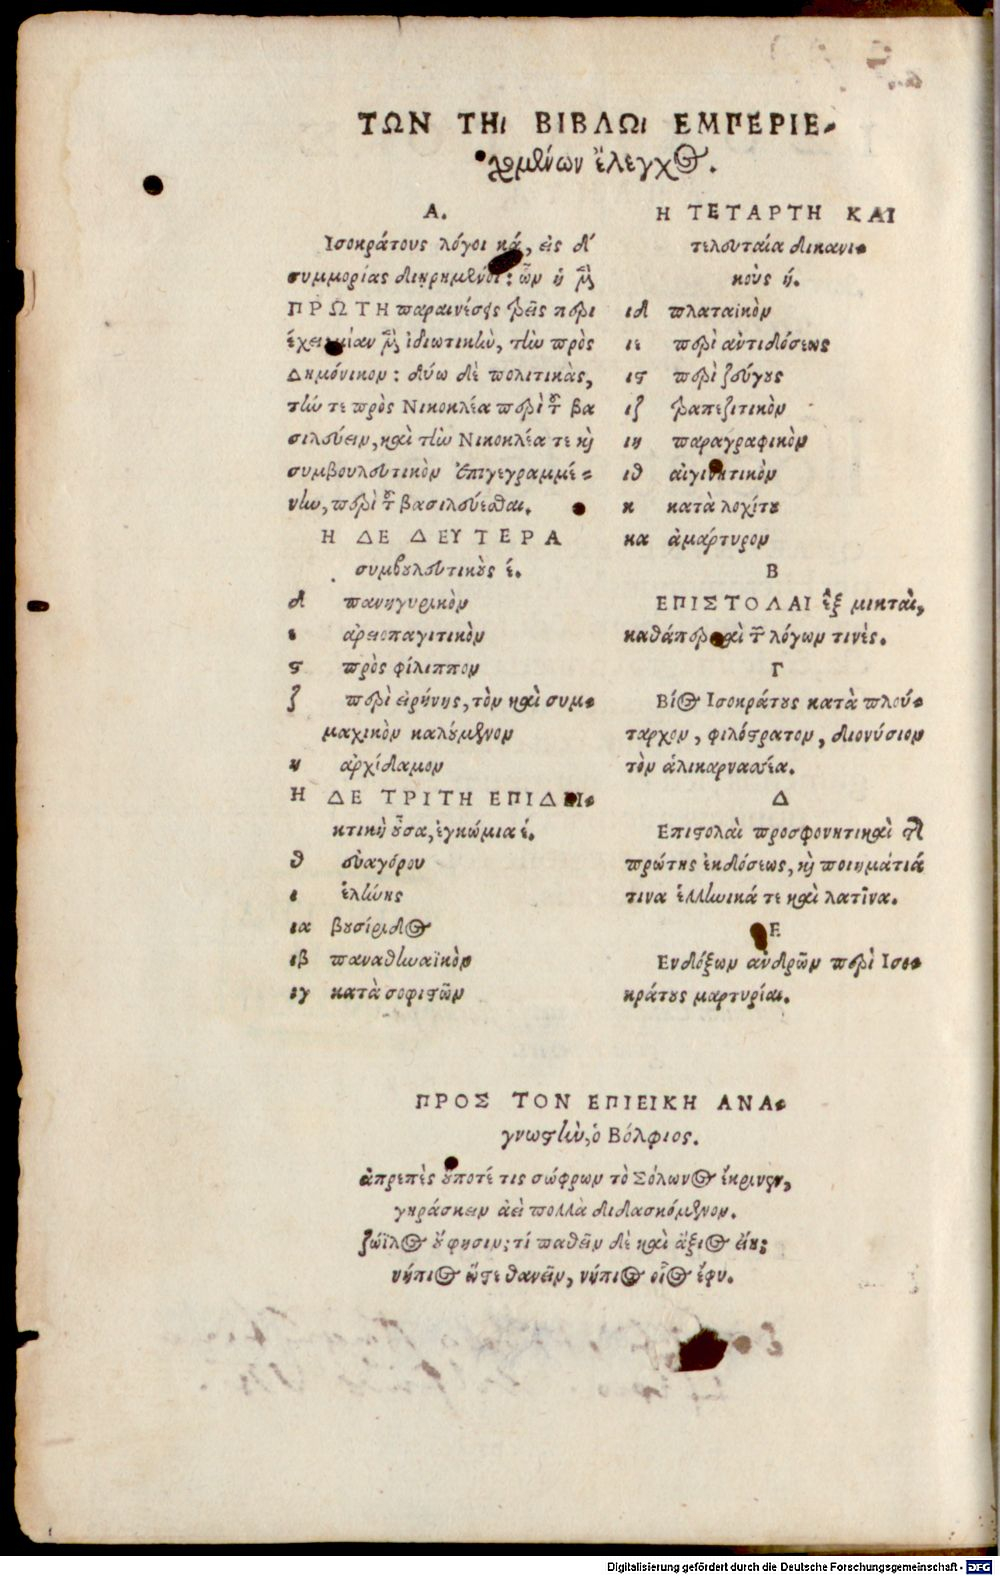 ΤΩΝ ΤΗΙ ΒΙΒΛΩΙ ΕΜΠΕΡΙΕ-
χομένων ἔλεγχος.
Α.
Ισοκράτους λόγοι κά, εἰς δ΄
συμμορίας διῃρημένοι: ὧν ἡ μὲν
ΠΡΩΤΗ παραινέσεις τρεῖς περι
έχει μίαν μὲν ἰδιωτικὴν, τὴν πρὸς
Δημόνικον: δύω δὲ πολιτικὰς,
τήν τε πρὸς Νικοκλέα περὶ τοῦ βα
σιλεύειν, καὶ τὴν Νικοκλέα τε καὶ
συμβουλευτικὸν ἐπιγεγραμμέ-
νην, περὶ τοῦ βασιλεύεσθαι.
Η ΔΕ ΔΕΥΤΕΡΑ
συμβουλευτικοὺς έ.
δ πανηγυρικὸν
ε αρειοπαγιτικὸν
ς πρὸς φίλιππον
ζ περὶ εἰρήνης, τὸν καὶ συμ-
μαχικὸν καλούμενον
η αρχίδαμον
Η ΔΕ ΤΡΙΤΗ ΕΠΙΔΕΙ-
κτικὴ οὖσα, ἐγκώμια έ.
θ ευαγόρου
ι ἑλένης
ια βουσίριδος
ιβ παναθηναϊκὸν
ιγ κατὰ σοφιστῶν
Η ΤΕΤΑΡΤΗ ΚΑΙ
τελευταία δικανι-
κοὺς ή.
ιδ πλαταϊκὸν
ιε περὶ ἀντιδόσεως
ις περὶ ζεύγους
ιζ τραπεζιτικὸν
ιη παραγραφικὸν
ιθ αἰγινητικὸν
κ κατὰ λοχίτου
κα ἀμάρτυρον
Β
ΕΠΙΣΤΟΛΑΙ ἓξ μικταὶ,
καθάπερ καὶ τῶν λόγων τινὲς.
Γ
Βίος Ισοκράτους κατὰ πλού-
ταρχον, φιλόστρατον, διονύσιον
τὸν ἁλικαρνασέα.
Δ
Επιστολαὶ προσφονητικαὶ τῆς
πρώτης ἐκδόσεως, καὶ ποιημάτιά
τινα ἑλληνικά τε καὶ λατῖνα.
Ε
Ενδόξων ἀνδρῶν περὶ Ισο-
κράτους μαρτυρίαι.
ΠΡΟΣ ΤΟΝ ΕΠΙΕΙΚΗ ΑΝΑ-
γνωστὴν, ὁ Βόλφιος.
ἀπρεπὲς οὔποτέ τις σώφρων τὸ Σόλωνος ἔκρινεν,
γηράσκειν ἀεὶ πολλὰ διδασκόμενον.
ζώϊλος οὔ φησιν; τί παθεῖν δὲ καὶ ἄξιος εἴη;
νήπιος ὥστε θανεῖν, νήπιος οἷος ἔφυ.
Digitalisierung gefördert durch die Deutsche Forschungsgemeinschaft - DFG